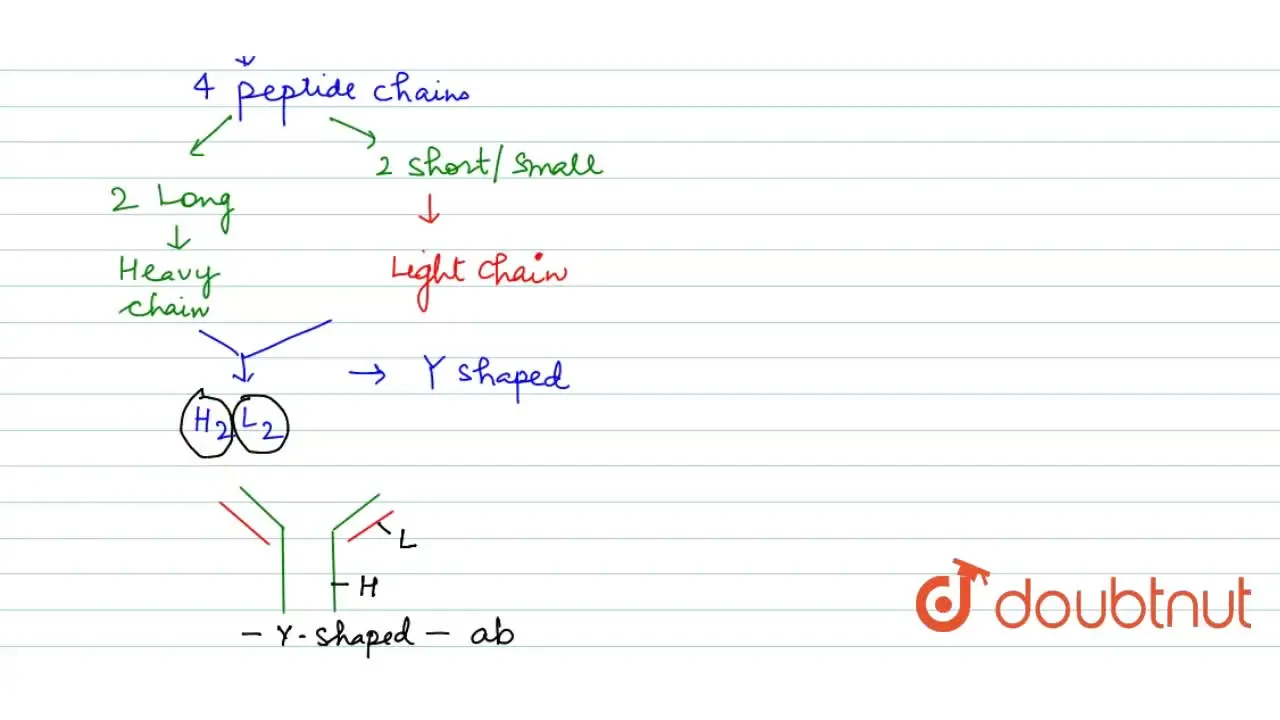 4 peptide chains
2 short/small
2 Long
Heavy
chain
Light chain
→ Y shaped
H2 L2
L
- H
- Y-shaped - ab
doubtnut